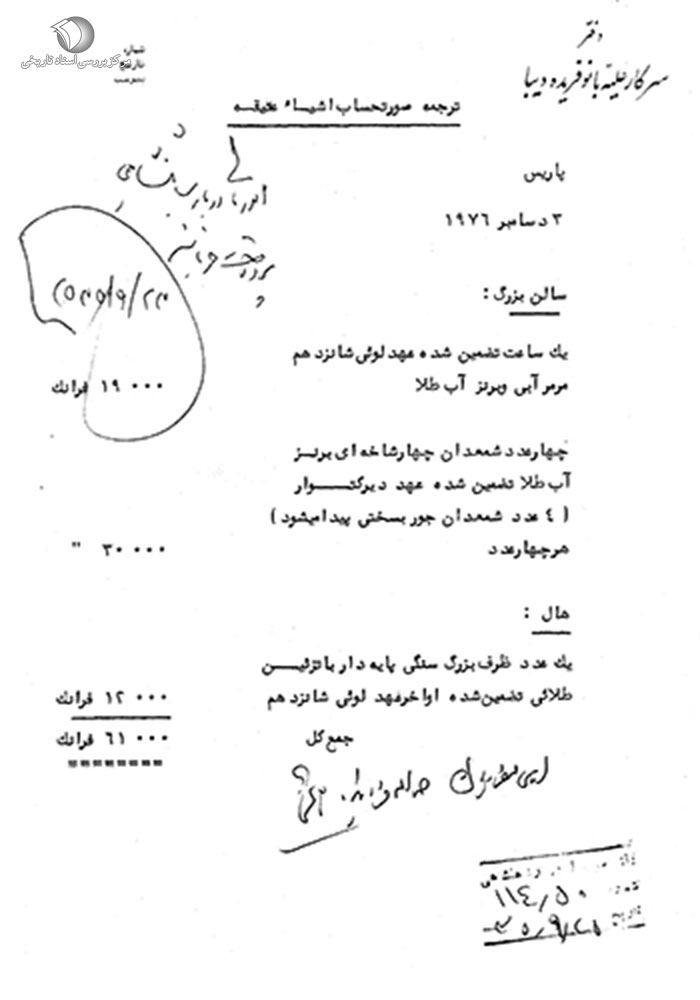 مرکز بررسی اسناد تاریخی
شماره
تاریخ
دفتر
سرکار علیه بانو فریده دیبا
ترجمه صورتحساب اشیاء عتیقه
پاریس
۳ دسامبر ۱۹۷۶
سالن بزرگ :
یك ساعت تضمین شده عهد لوئی شانزدهم
مرمر آبی وبرنز آب طلا ۱۹ ۰۰۰ فرانك
چهارعدد شمعدان چهارشاخه ای برنز
آب طلا تضمین شده عهد دیرکتوار
( ٤ عدد شمعدان جور بسختی پیدا میشود )
هرچهارعدد ۳۰ ۰۰۰ "
هال :
یك عدد ظرف بزرگ سنگی پایه دار با تزئین
طلائی تضمین شده اواخرعهد لوئی شانزدهم ۱۲ ۰۰۰ فرانك
جمع کل ٦۱ ۰۰۰ فرانك